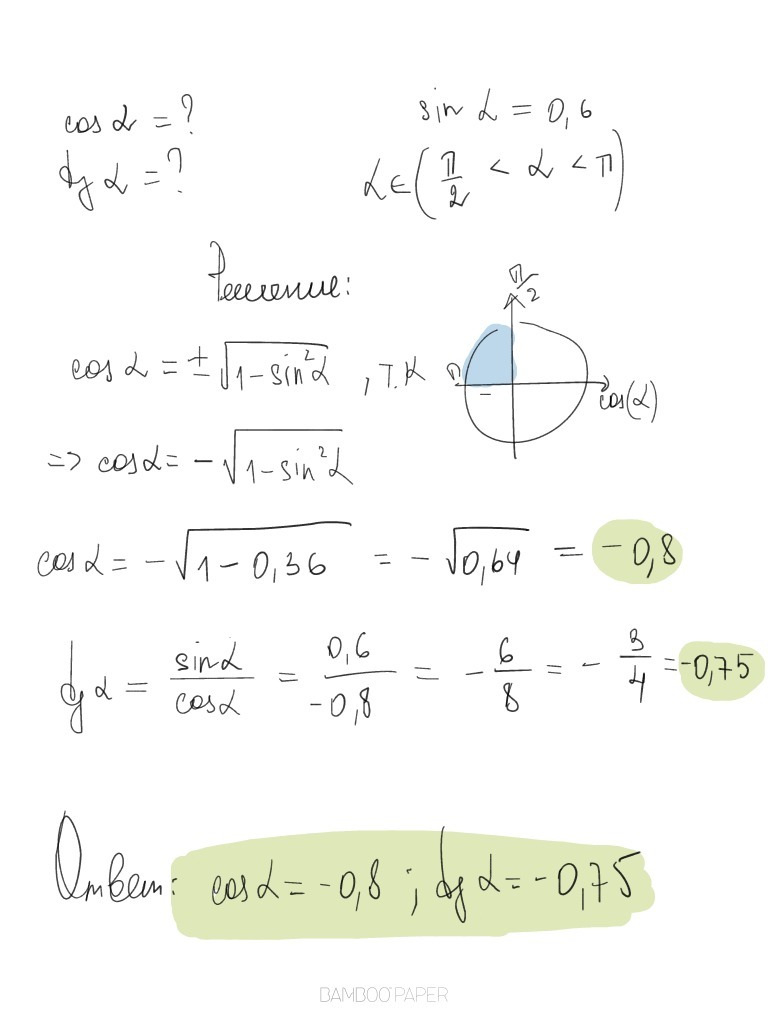 cos α = ?
sin α = 0,6
tg α = ?
α ∈ (π/2 < α < π)
Решение:
π/2
cos α = ± √(1 − sin²α) , т.к
π
−
cos(α)
=> cos α = − √(1 − sin²α)
cos α = − √(1 − 0,36) = − √0,64 = − 0,8
tg α = sin α / cos α = 0,6 / −0,8 = − 6/8 = − 3/4 = −0,75
Ответ: cos α = −0,8 ; tg α = −0,75
BAMBOO PAPER